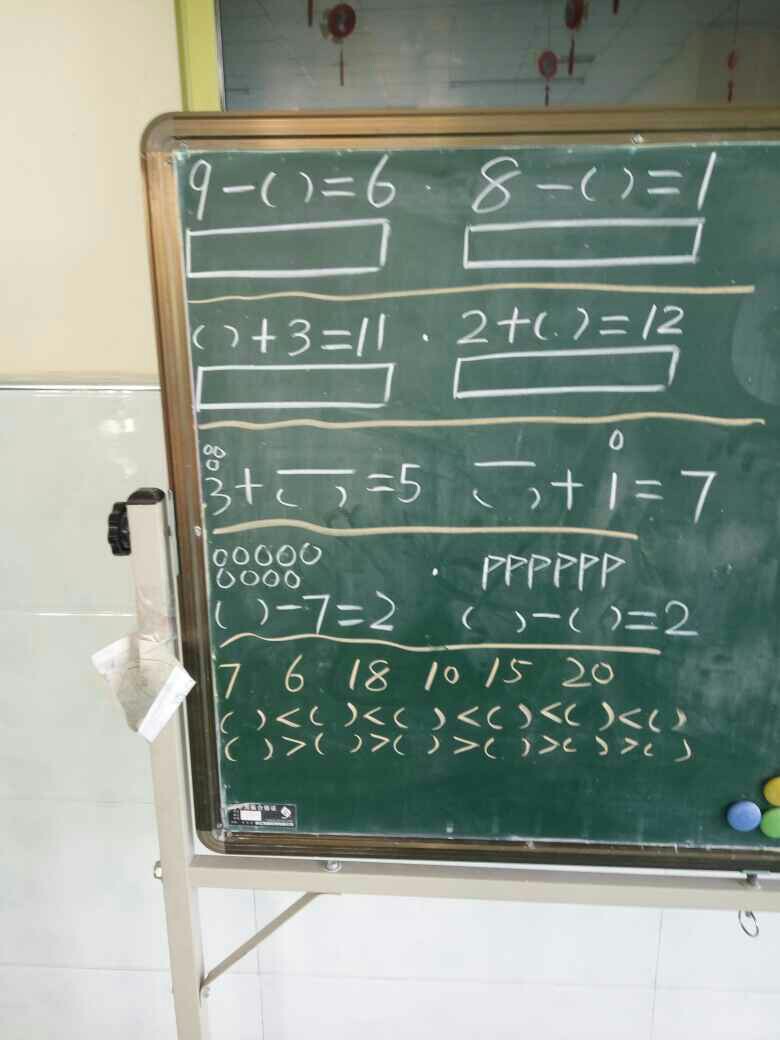 9-( )=6 · 8-( )=1
( )+3=11 · 2+( )=12
3+( )=5 ( )+1=7
( )-7=2 · PPPPPP ( )-( )=2
7 6 18 10 15 20
( )<( )<( )<( )<( )<( )
( )>( )>( )>( )>( )>( )